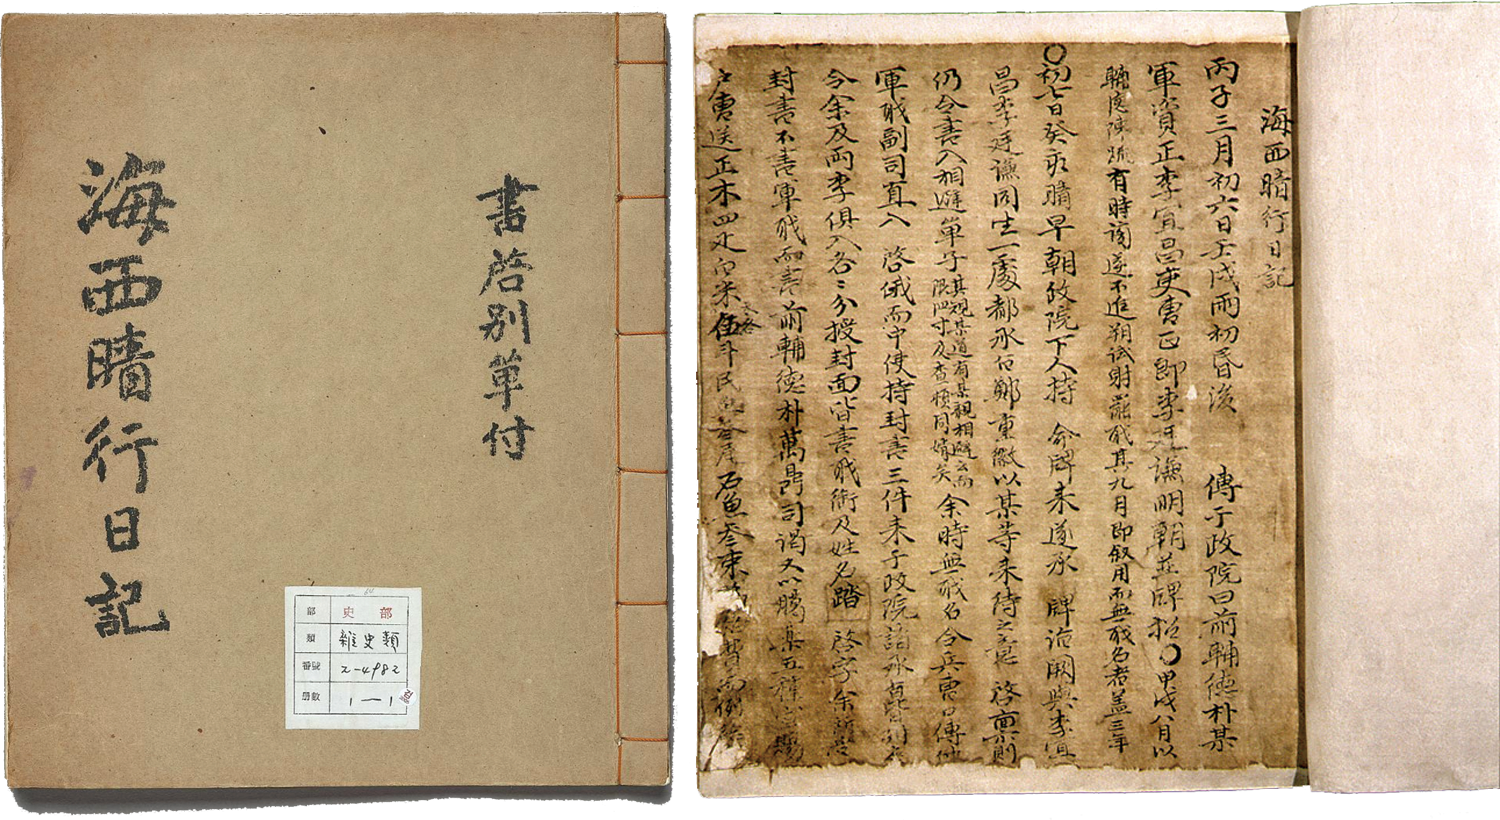 海西暗行日記
書啓別單付
部 史部
類 雜史類
番號 2-4982
册數 1—1
海西暗行日記
丙子三月初六日壬戌雨初昏後 傳于政院曰前輔德朴某
軍資正李宜昌吏曹正郎李 謙明朝並牌招〇甲戌八月以
輔德陳疏有時 遂不進朔試射罷職其九月即叙用而無職名者蓋三年
〇初七日癸亥晴早朝政院下人持 命牌來遂承 牌詣闕與李宜
昌李廷謙同坐一處都承旨鄭重徽以某等來待之意 啓稟則
仍令書入相避單子其規某道有某親相避云而
限四寸及查頓同婿矣 余時無職名令兵曹口傳付
軍職副司直入 啓俄而中使持封書三件來于政院諸承旨
令余及兩李俱入各各分授封面皆書職銜及姓名踏 啓字余
封書不書軍職而書前輔德朴萬鼎司謁又以臈藥五種
戶曹送正木四疋白米伍斗民魚參尾石魚參束